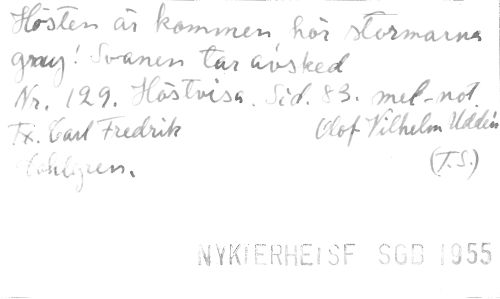 Hösten är kommen hör stormarna
gny! Svanen tar avsked
Nr. 129. Höstvisa. Sid. 83. mel-not
Tx. Carl Fredrik Olof Vilhelm Uddén
Dahlgren. (T.S.)
NYKIERHEISF SGB 1955